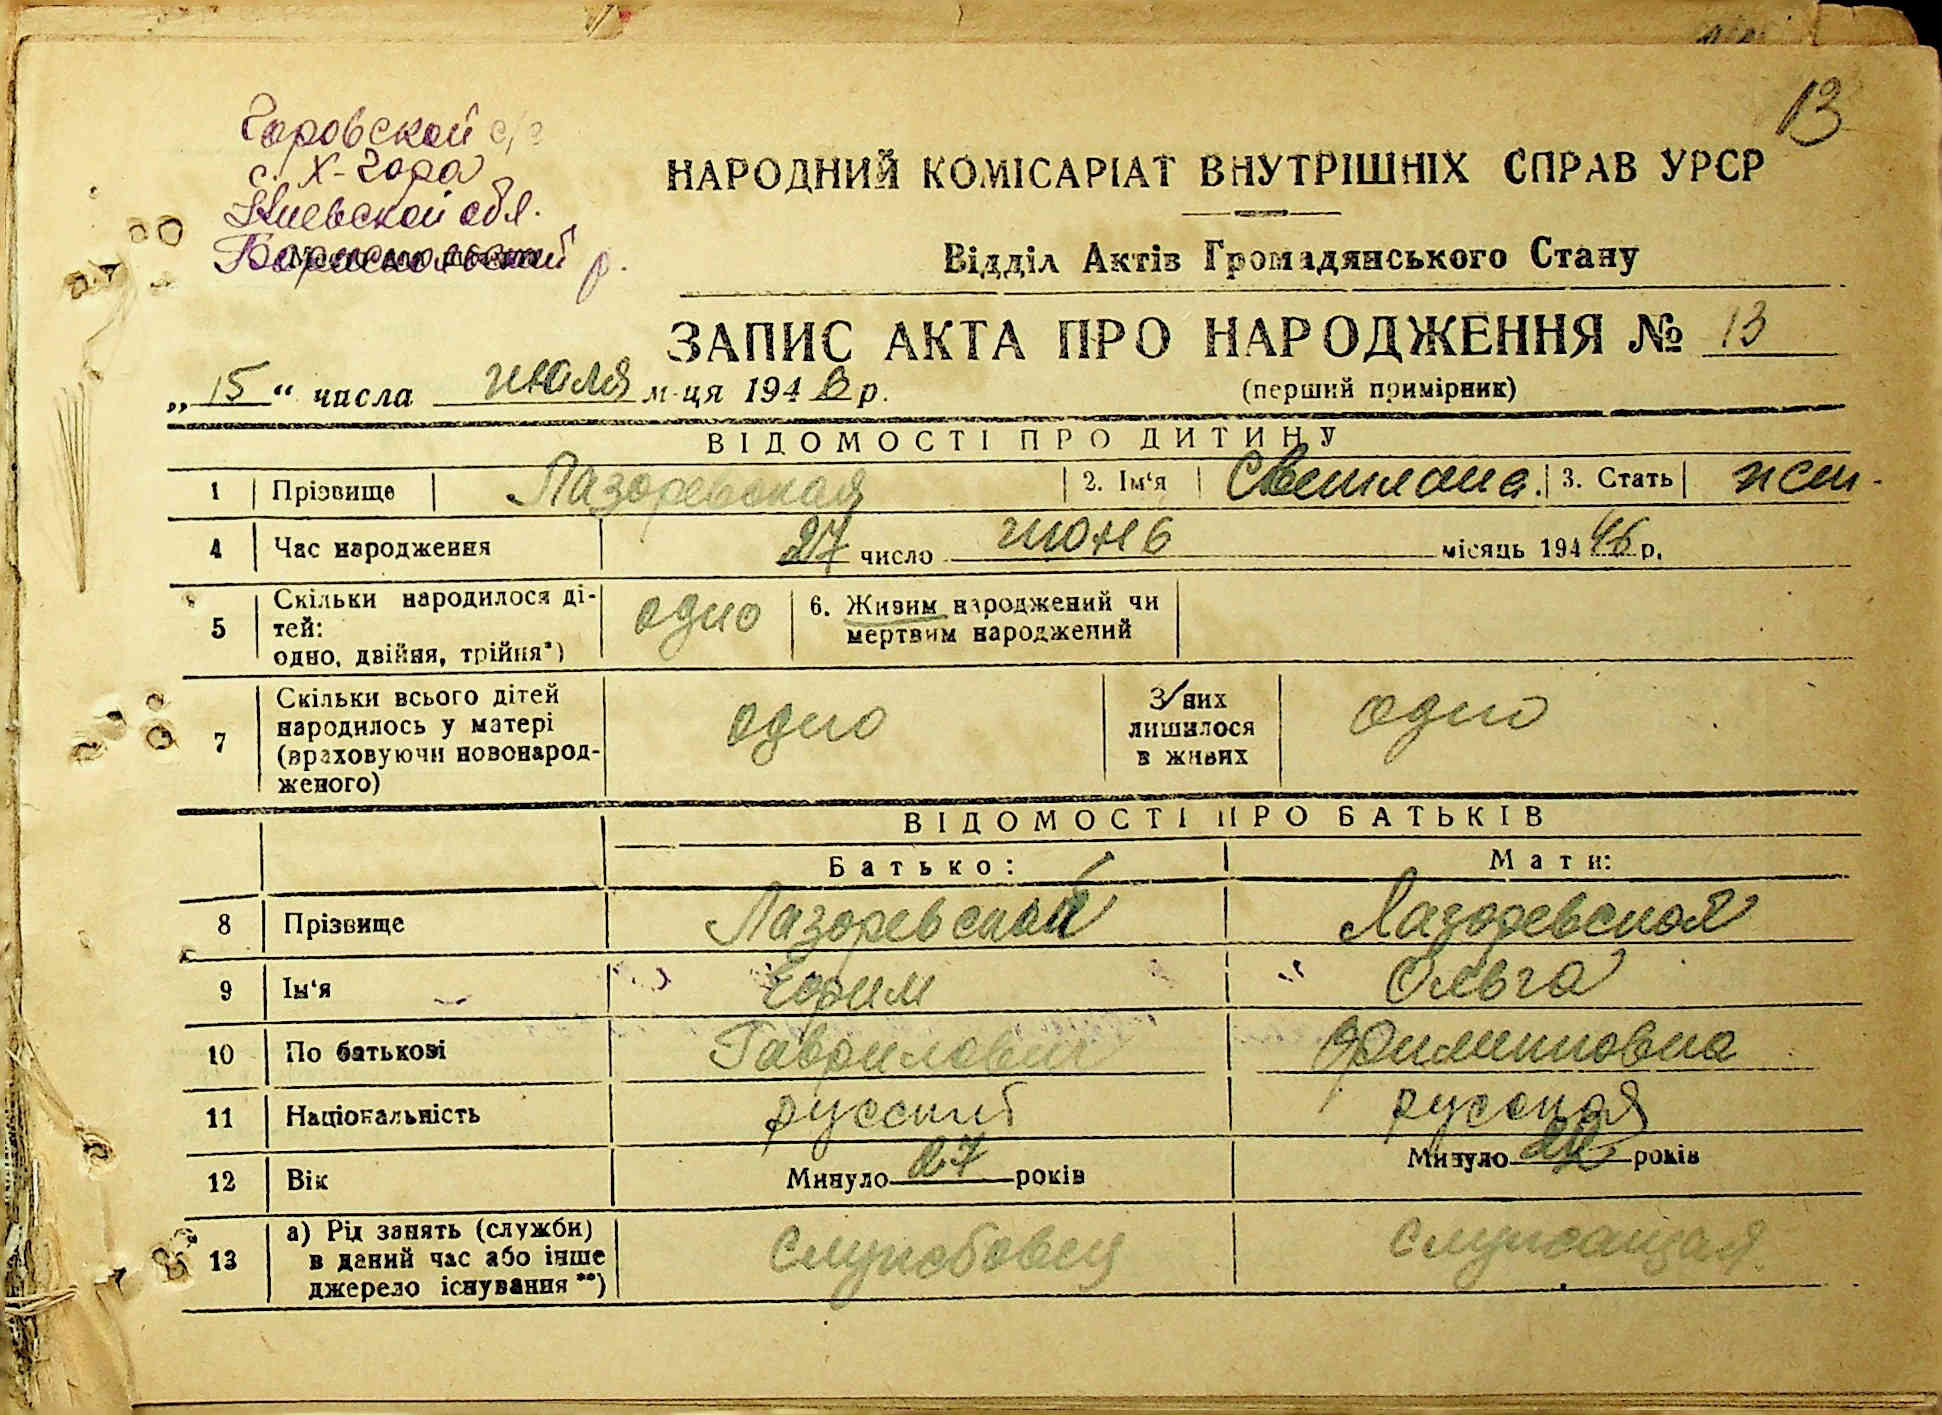 13
Горовской с/с
с. Х-Гора
Киевской обл.
Бориспольский р.
НАРОДНИЙ КОМІСАРІАТ ВНУТРІШНІХ СПРАВ УРСР
Відділ Актів Громадянського Стану
ЗАПИС АКТА ПРО НАРОДЖЕННЯ № 13
(перший примірник)
„15“ числа июля м-ця 1946 р.
ВІДОМОСТІ ПРО ДИТИНУ
1 Прізвище Лазоревская 2. Ім'я Светлана. 3. Стать жен-
4 Час народження 27 число июнь місяць 194 46 р.
5 Скільки народилося ді-
тей:
одно, двійня, трійня*) одно 6. Живим народжений чи
мертвим народжений
7 Скільки всього дітей
народилось у матері
(враховуючи новонарод-
женого) одно З них
лишилося
в живих одно
ВІДОМОСТІ ПРО БАТЬКІВ
Батько: Мати:
8 Прізвище Лазоревский Лазоревская
9 Ім'я Ефим Ольга
10 По батькові Гаврилович Филипповна
11 Національність русский русская
12 Вік Минуло 27 років Минуло років
13 а) Рід занять (служби)
в даний час або інше
джерело існування **) службовец служащая